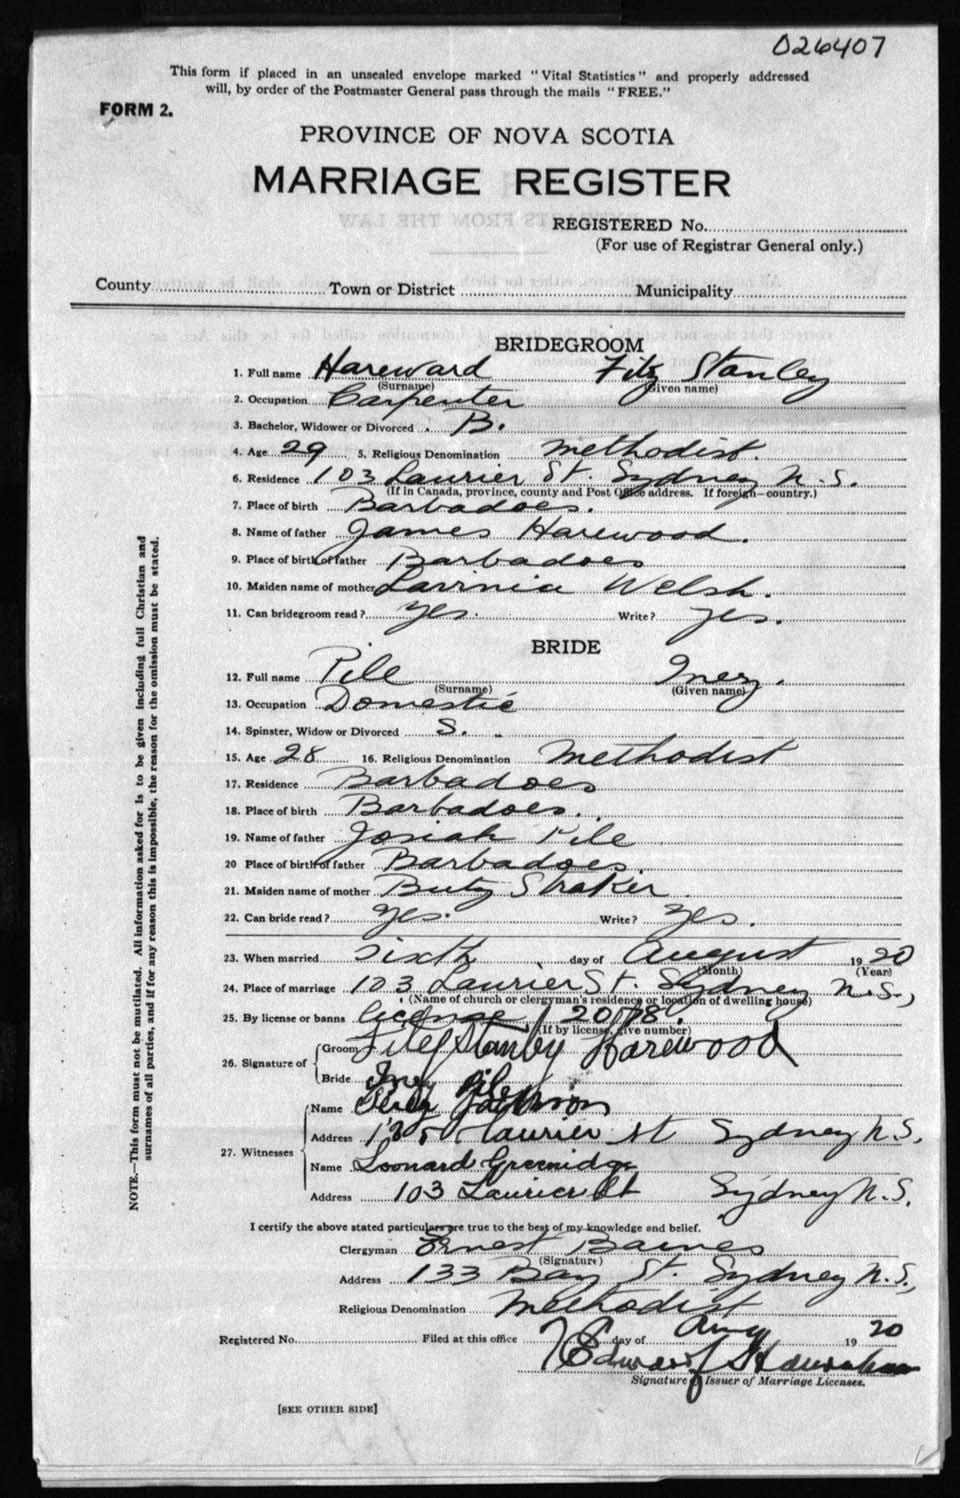 026407
This form if placed in an unsealed envelope marked "Vital Statistics" and properly addressed
will, by order of the Postmaster General pass through the mails "FREE."
FORM 2.
PROVINCE OF NOVA SCOTIA
MARRIAGE REGISTER
REGISTERED No.
(For use of Registrar General only.)
County Town or District Municipality
BRIDEGROOM
1. Full name Hareward Fitz Stanley
(Surname) (Given name)
2. Occupation Carpenter
3. Bachelor, Widower or Divorced B.
4. Age 29 5. Religious Denomination Methodist.
6. Residence 103 Laurier St. Sydney N.S.
(If in Canada, province, county and Post Office address. If foreign—country.)
7. Place of birth Barbadoes.
8. Name of father James Harewood.
9. Place of birth of father Barbadoes
10. Maiden name of mother Lavinia Welsh.
11. Can bridegroom read? Yes. Write? Yes.
BRIDE
12. Full name Pile Inez.
(Surname) (Given name)
13. Occupation Domestic
14. Spinster, Widow or Divorced S.
15. Age 28 16. Religious Denomination Methodist
17. Residence Barbadoes
18. Place of birth Barbadoes.
19. Name of father Josiah Pile
20 Place of birth of father Barbadoes.
21. Maiden name of mother Straker
22. Can bride read? Yes. Write? Yes.
23. When married Sixth day of August 1920
(Month) (Year)
24. Place of marriage 103 Laurier St. Sydney N.S.,
(Name of church or clergyman's residence or location of dwelling house)
25. By license or banns license
(If by license, give number)
26. Signature of
Groom Fitz Stanley Harewood
Bride Inez Pile
27. Witnesses
Name
Address Laurier St Sydney N.S.
Name Leonard Greenidge
Address 103 Laurier St Sydney N.S.
I certify the above stated particulars are true to the best of my knowledge and belief.
Clergyman Ernest Barnes
(Signature)
Address 133 Bay St. Sydney N.S.,
Religious Denomination Methodist
Registered No. Filed at this office day of Aug 1920
Edward
Signature of Issuer of Marriage Licenses.
[SEE OTHER SIDE]
NOTE.—This form must not be mutilated. All information asked for is to be given including full Christian and
surnames of all parties, and if for any reason this is impossible, the reason for the omission must be stated.